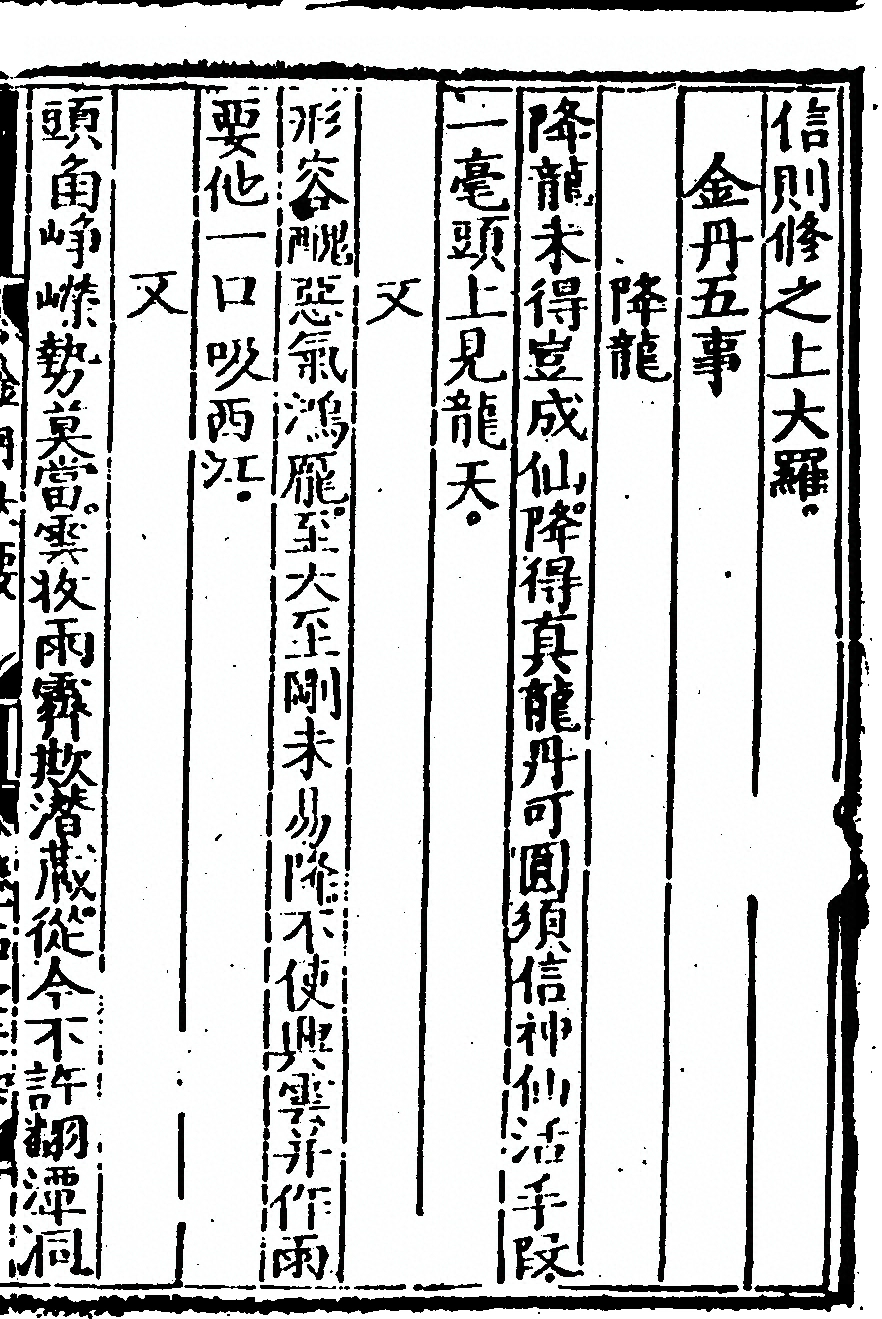 信則修之上大羅。
金丹五事
降龍
降龍未得豈成仙。降得真龍丹可圓。須信神仙活手段。
一毫頭上見龍天。
又
形容醜惡氣鴻龐。至大至剛未易降。不使興雲并作雨
要他一口吸西江。
又
頭角崢嶸勢莫當。雲收雨霽欺潛藏。從今不許翻潭洞